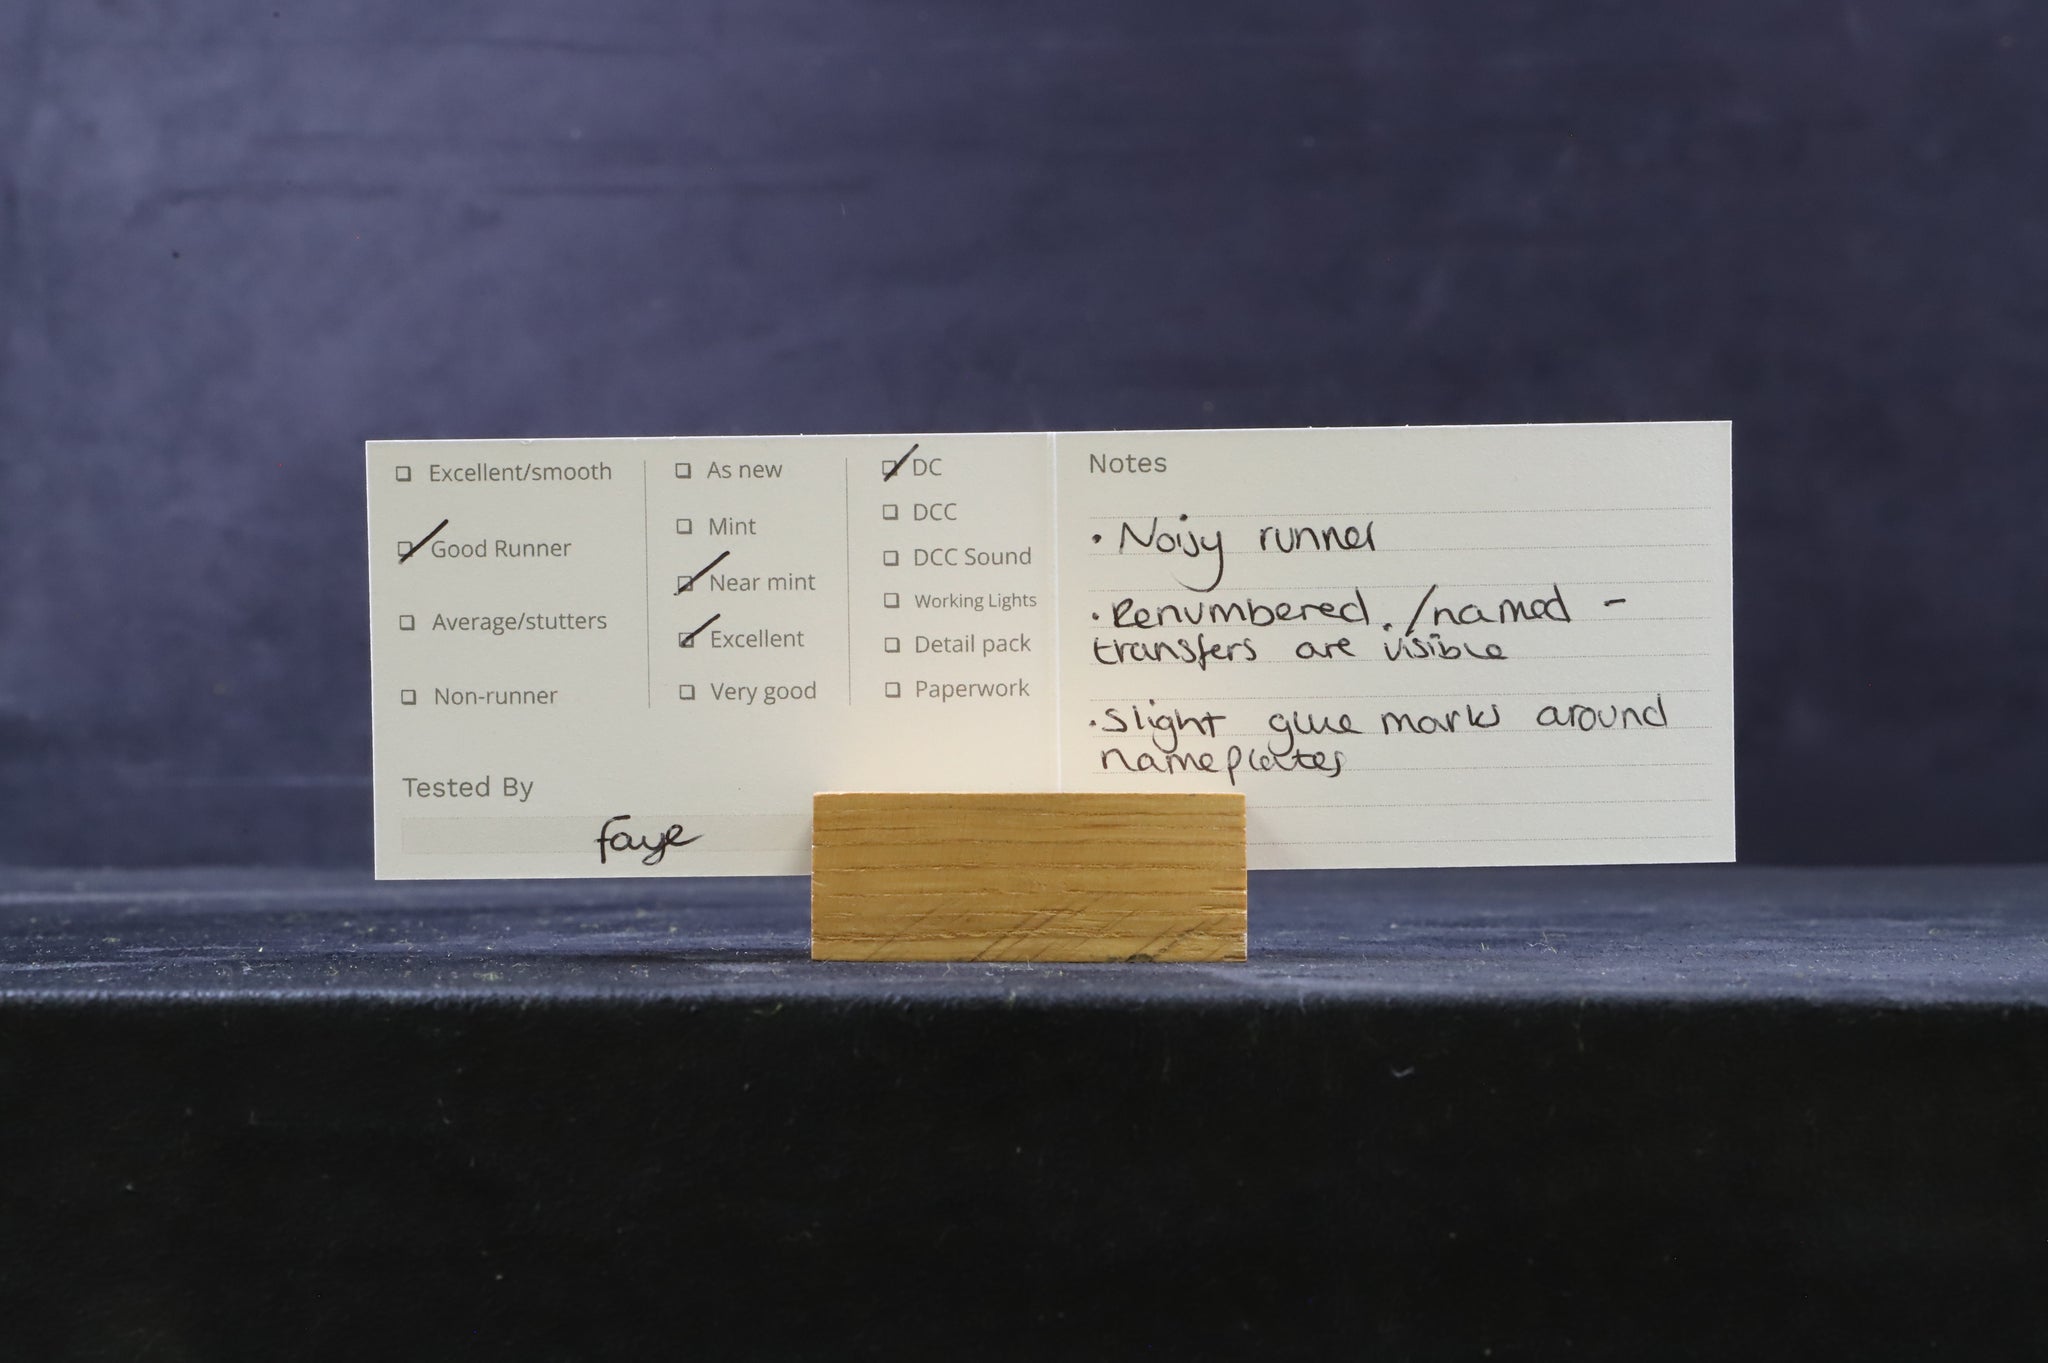 Excellent/smooth
Good Runner
Average/stutters
Non-runner
As new
Mint
Near mint
Excellent
Very good
DC
DCC
DCC Sound
Working Lights
Detail pack
Paperwork
Tested By
faye
Notes
• Noisy runner
• Renumbered./named -
transfers are visible
• Slight glue marks around
nameplates